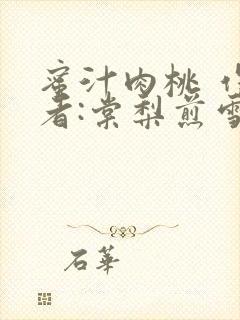 蜜汁肉桃
者:棠梨煎雪
石華